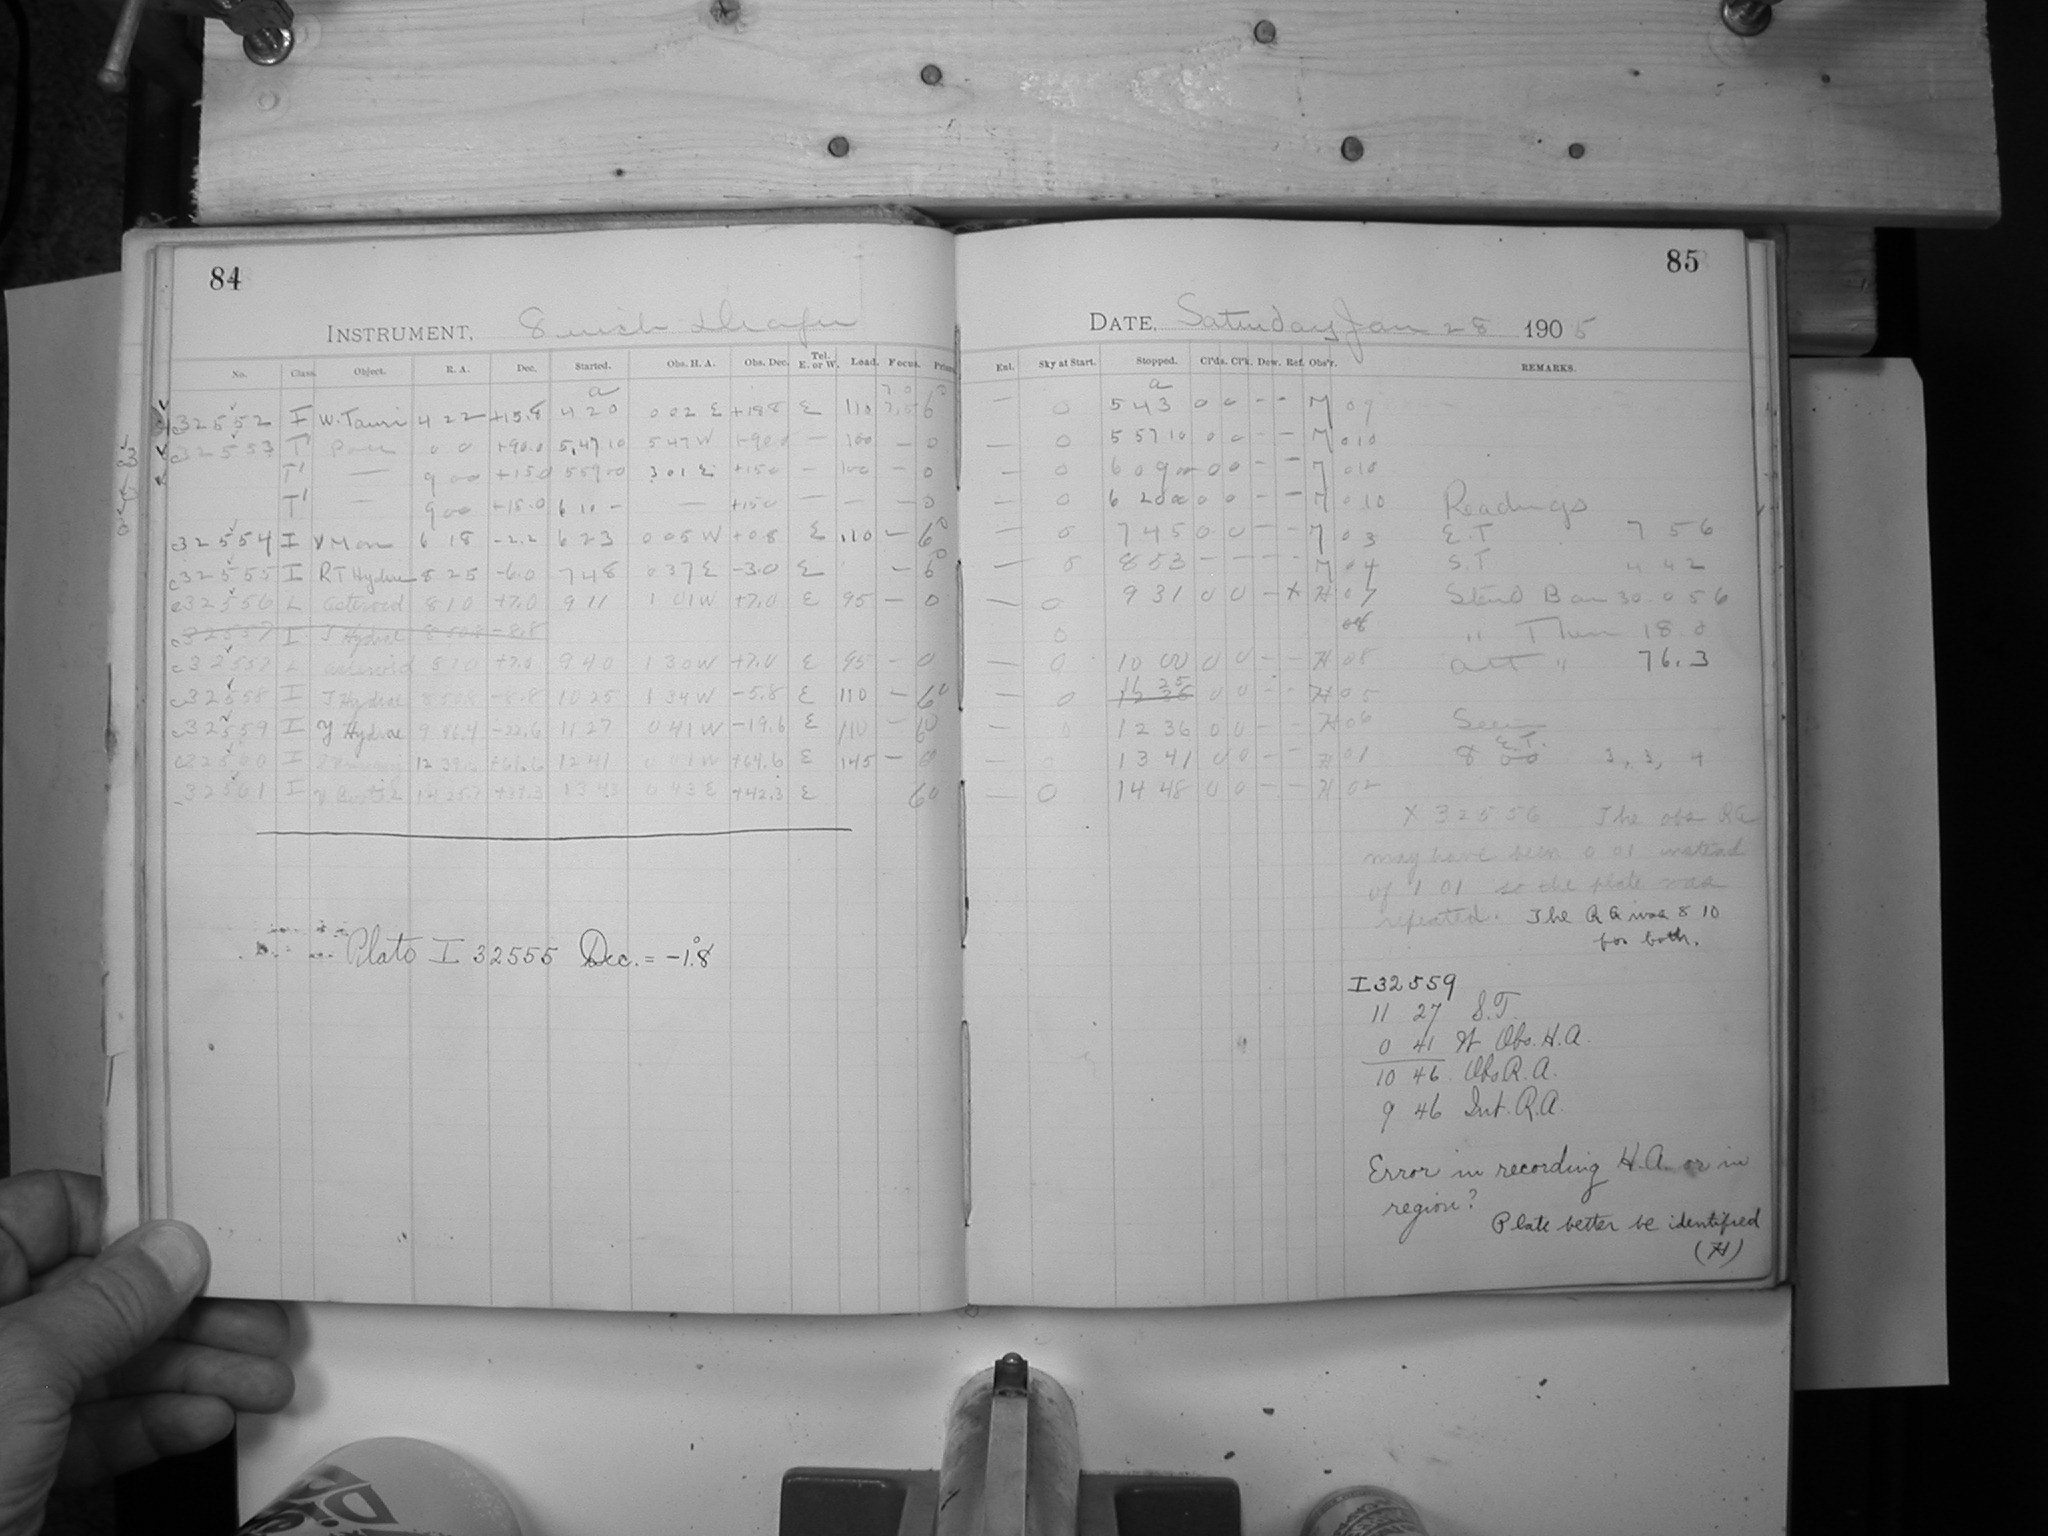 84
INSTRUMENT, 8 inch Draper
No. Class. Object. R. A. Dec. Started. Obs. H. A. Obs. Dec. Tel. E. or W. Load. Focus.
a
32552 I W. Tauri 4 22 +15.8 4 20 0 02 E +18.8 E 110
32553 T' 0 0 +90.0 5,47 10 5 47 W +90.0 — 100 — 0
T' — 9 00 +15.0 5 59 00 3 01 E +15.0 — 100 — 0
T' — 9 00 +15.0 6 10 — — +15.0 — — — 0
c32554 I V Mon 6 18 -2.2 6 23 0 05 W +0.8 E 110 — 60
c32555 I RT Hydrae 8 25 -6.0 7 48 0 37 E -3.0 E — 60
c32556 L asteroid 8 10 +7.0 9 11 1 01 W +7.0 E 95 — 0
c32557 I T Hydrae 8 50.8 -8.8
c32557 L asteroid 8 10 +7.0 9 40 1 30 W +7.0 E 95 — 0
c32558 I T Hydrae 8 50.8 -8.8 10 25 1 34 W -5.8 E 110 — 60
c32559 I Y Hydrae 9 46.4 -22.6 11 27 0 41 W -19.6 E 110 — 60
c32560 I 12 39.6 +61.6 12 41 0 01 W +64.6 E 145 — 60
32561 I V Bootis 14 25.7 +39.3 13 43 0 43 E +42.3 E 60
Plate I 32555 Dec. = -1.8°
85
DATE, Saturday Jan 28 1905
Enl. Sky at Start. Stopped. Cl'ds. Cl'k. Dew. Ref. Obs'r. REMARKS.
a
— 0 5 43 0 0 - - M 09
— 0 5 57 10 0 0 - - M 010
— 0 6 09 00 0 0 - - M 010
— 0 6 20 00 0 0 - - M 010 Readings
— 0 7 45 0 0 - - M 03 E.T 7 56
— 0 8 53 - - - - M 04 S.T 4 42
— 0 9 31 0 0 - X H 07 Stand Bar 30.056
0 08 " Ther 18.0
— 0 10 00 0 0 - - H 08 Att " 76.3
— 0 11 25 0 0 - - H 05
0 12 36 0 0 - - H 06 Seein
0 13 41 0 0 - - H 01 E.T. 8 00 3, 3, 4
— 0 14 48 0 0 - - H 02
X 32556 The obs RA
may have been 0 01 instead
of 1 01 so the plate was
repeated. The RA was 8 10
for both.
I 32559
11 27 S.T.
0 41 W Obs. H.A.
10 46 Obs R.A.
9 46 Int. R.A.
Error in recording H.A. or in
region?
Plate better be identified
(H)